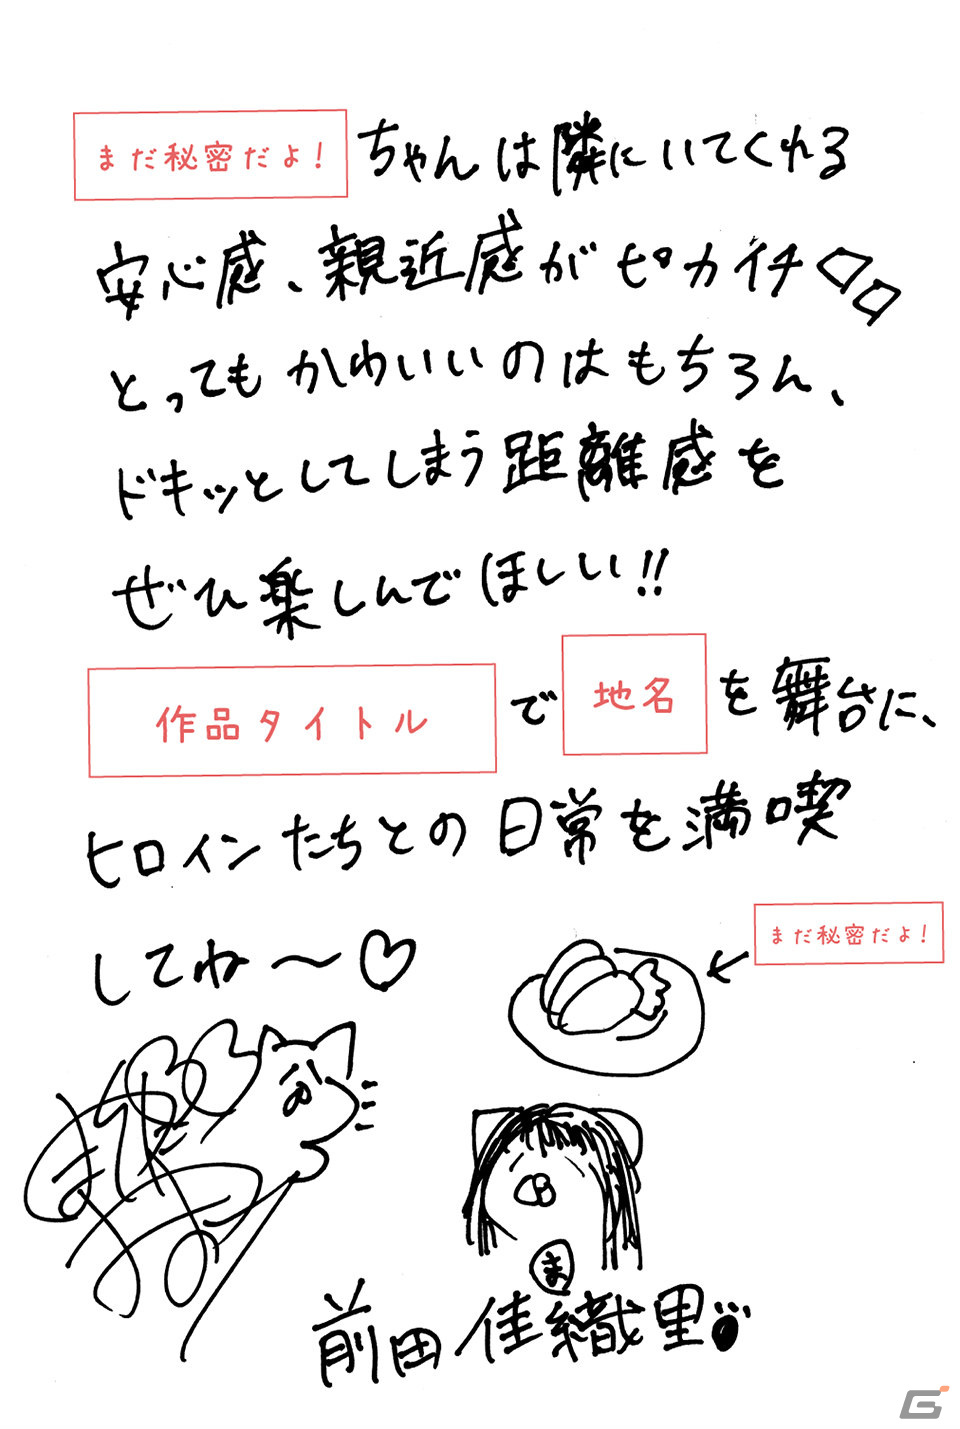 まだ秘密だよ! ちゃんは隣にいてくれる
安心感、親近感がピカイチ
とってもかわいいのはもちろん、
ドキッとしてしまう距離感を
ぜひ楽しんでほしい!!
作品タイトル で 地名 を舞台に、
ヒロインたちとの日常を満喫
してね〜♡
まだ秘密だよ!
ま
前田佳織里
G